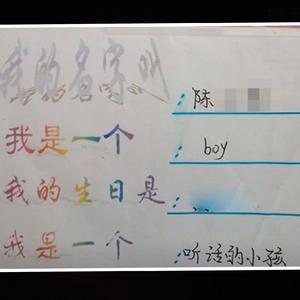 我的名字叫：陈
我是一个：boy
我的生日是：
我是一个：听话的小孩